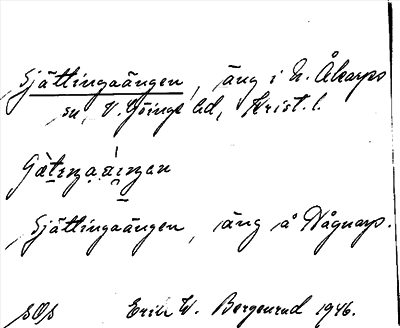 Sjättingaängen, äng i N. Åkarps
sn, V. Göinge hd, Krist. l.
Sjättingaängen, äng å Vågnarp.
SOS Erik W. Bergenrud 1946.